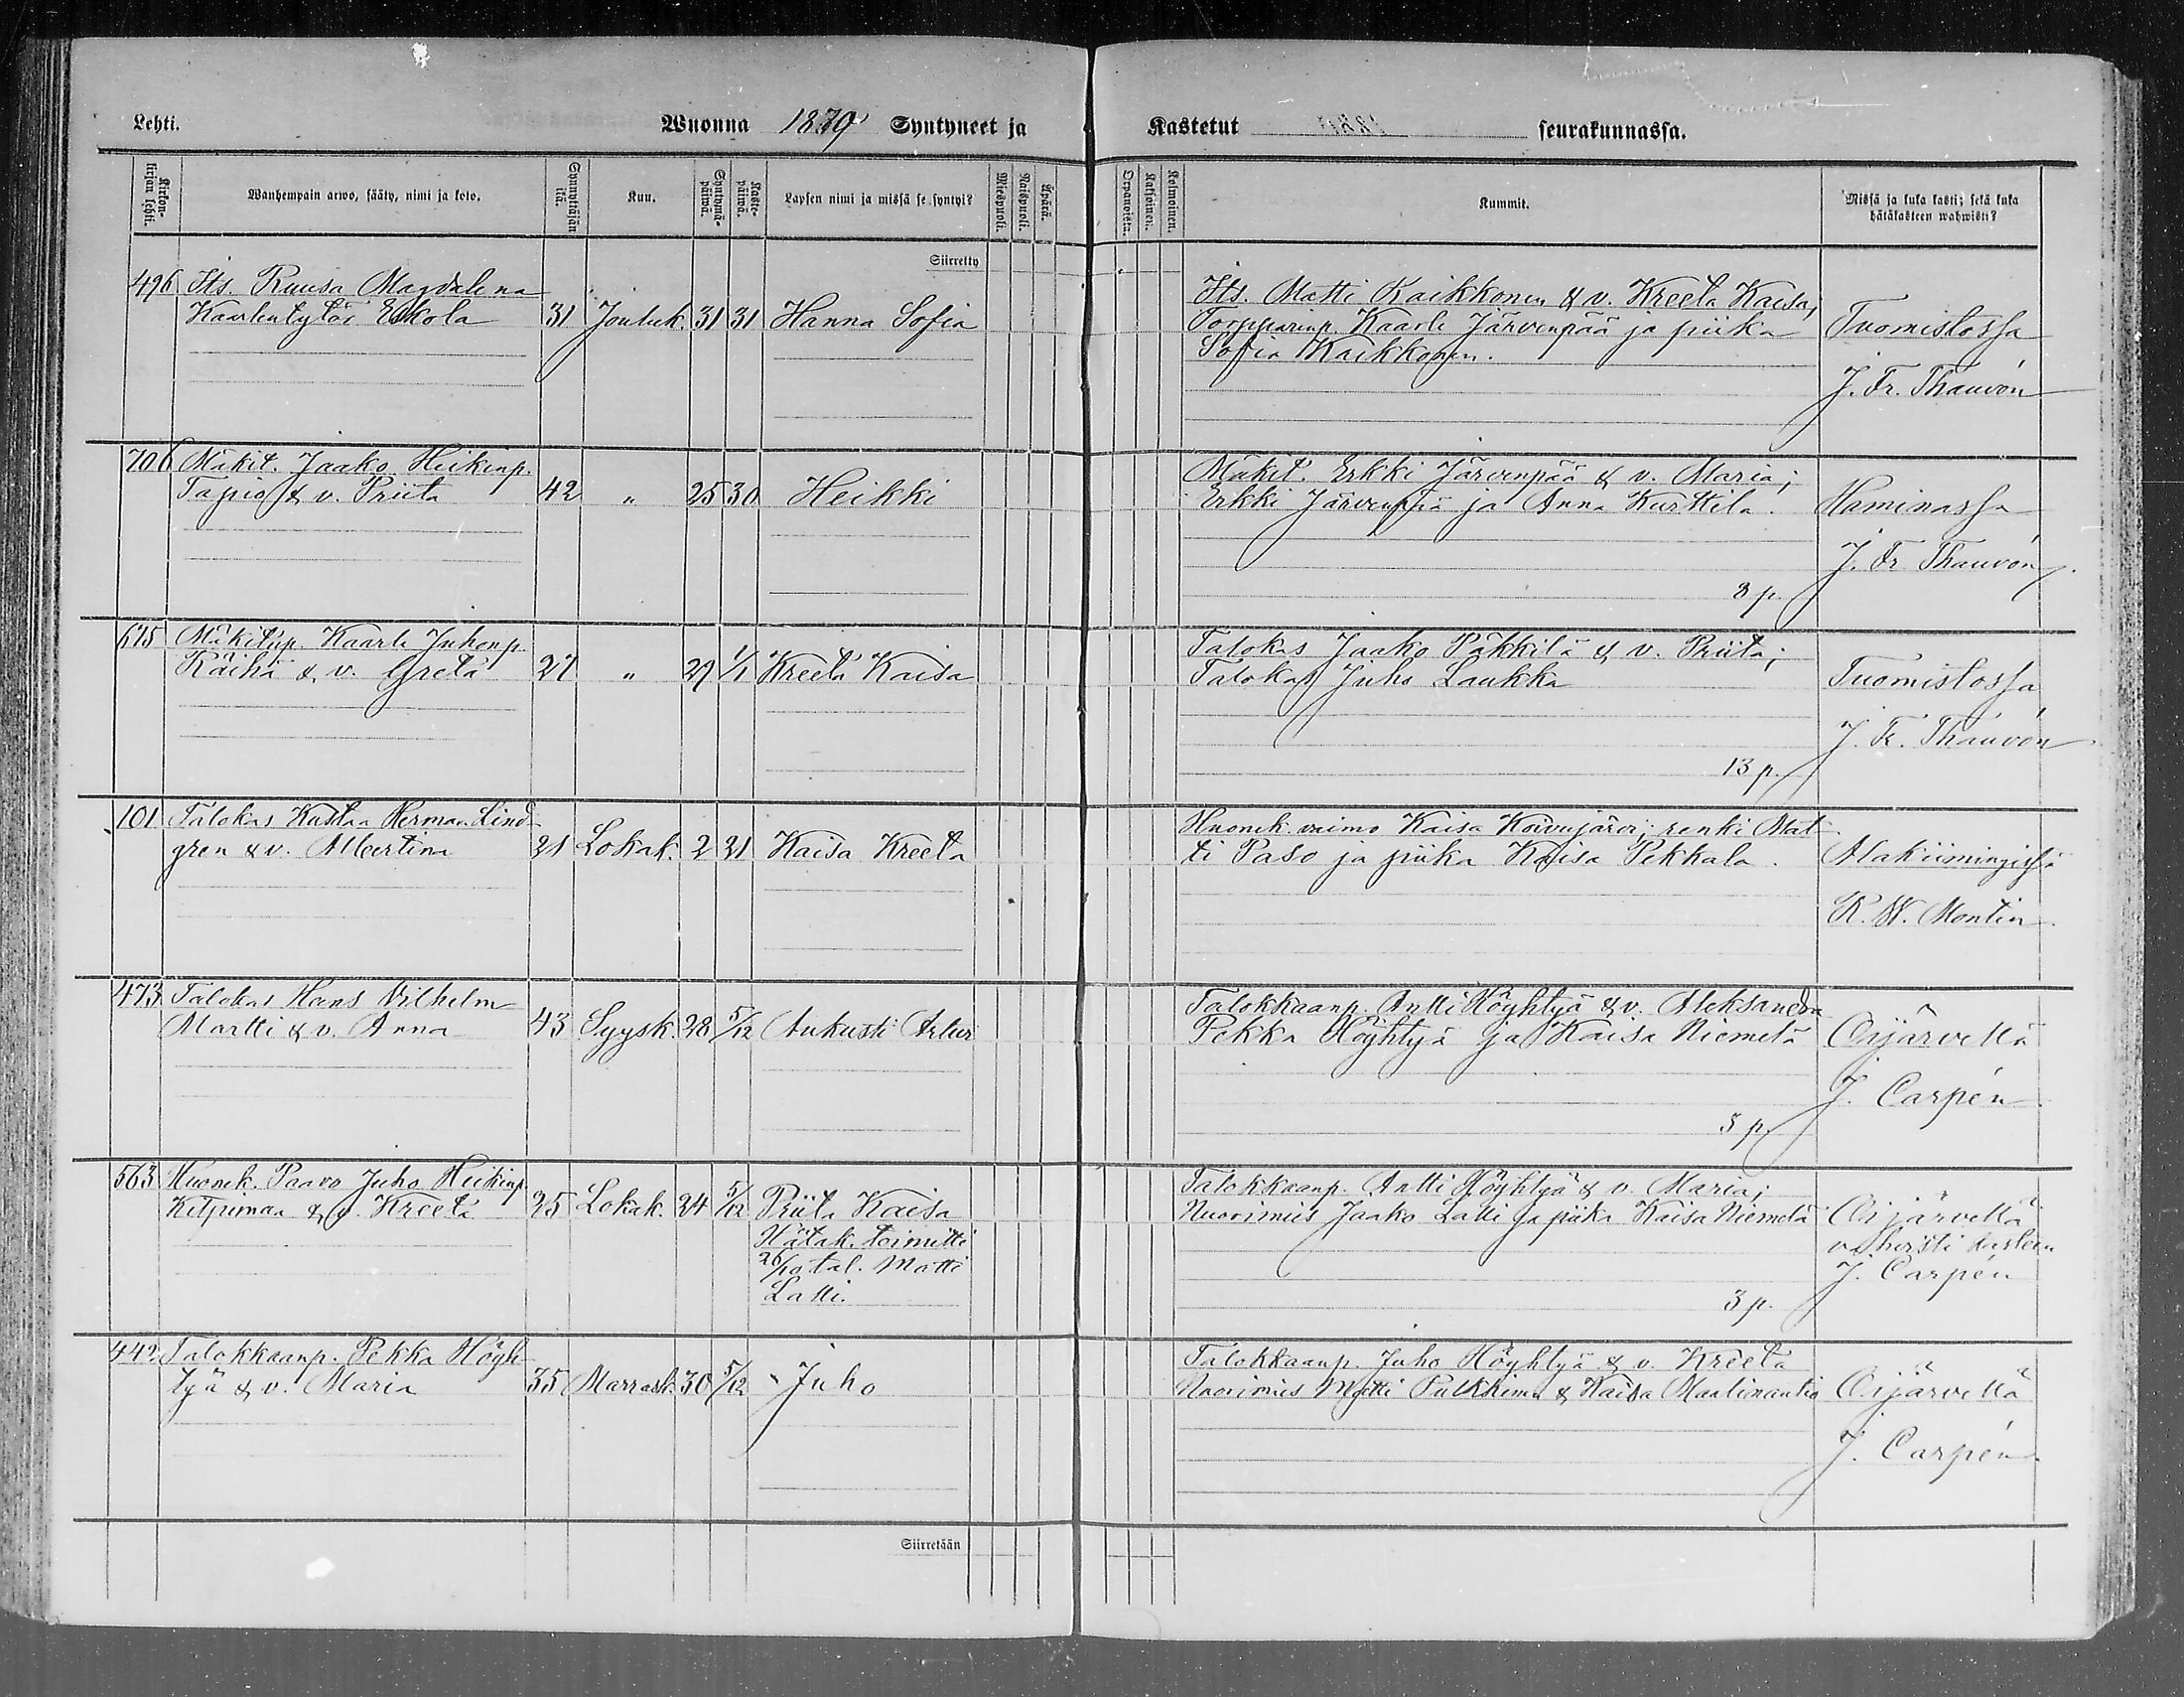 Lehti.
Wuonna 1879 Syntyneet ja
Kastetut seurakunnassa.
Kirkonkirjan lehti.
Wanhempain arwo, sääty, nimi ja koto.
Synnyttäjän ikä.
Kuu.
Syntymäpäiwä.
Kastepäiwä.
Lapsen nimi ja missä se syntyi?
Miespuoli.
Naispuoli.
Äpärä.
Orpanoisia.
Kaksoinen.
Kolmoinen.
Kummit.
Missä ja kuka kasti; sekä kuka hätäkasteen wahwisti?
Siirretty
496 Its. Ruusa Magdalena
Kaarlentytär Eskola 31 Jouluk. 31 31 Hanna Sofia
Its. Matti Kaikkonen & v. Kreeta Kaisa;
Torpparinp. Kaarle Järvenpää ja piika
Sofia Kaikkonen.
Tuomistossa
J. Fr. Thauvón
706 Mäkit. Jaako Heikinp.
Tapio & v. Priita 42 " 25 30 Heikki
Mäkit. Erkki Järvenpää & v. Maria;
Erkki Järvenpää ja Anna Kurttila.
8 p.
Haminassa
J. Fr. Thauvón
675 Mäkitup. Kaarle Juhonp.
Räihä & v. Greta 27 " 29 1/1 Kreeta Kaisa
Talokas Jaako Päkkilä & v. Priita;
Talokas Juho Laukka
13 p.
Tuomistossa
J. Fr. Thauvón
101 Talokas Kustaa Herman Lind-
gren & v. Albertina 21 Lokak. 2 21 Kaisa Kreeta
Huonek. vaimo Kaisa Koivujärvi; renki Mat-
ti Paso ja piika Kaisa Pekkala.
Alakiimingissä
K. W. Montin
473 Talokas Hans Vilhelm
Martti & v. Anna 43 Syysk. 28 5/12 Aukusti Artur
Talokkaanp. Antti Höyhtyä & v. Aleksandra
Pekka Höyhtyä ja Kaisa Niemelä
5 p.
Oijärvellä
J. Carpén
563 Huonek. Paavo Juho Heikinp.
Kitpimaa & v. Kreeta 25 Lokak. 24 5/12 Priita Kaisa
Hätäk. toimitti
26/10 tal. Matti
Latti.
Talokkaanp. Antti Höyhtyä & v. Maria;
Nuorimies Jaako Latti ja piika Kaisa Niemelä
3 p.
Oijärvellä
vahvisti kasteen
J. Carpén
442 Talokkaanp. Pekka Höyh-
tyä & v. Maria 35 Marrask. 30 5/12 Juho
Talokkaanp. Juho Höyhtyä & v. Kreeta
Nuorimies Matti Pulkkinen & Kaisa Maalinantio
Oijärvellä
J. Carpén
Siirretään